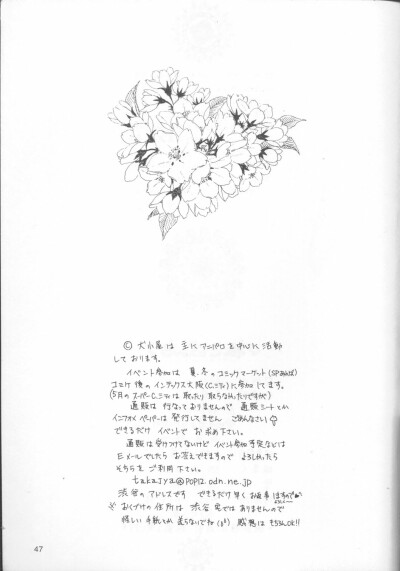 © 犬小屋は 主に アニパロ を中心に 活動
しております。
イベント参加は 夏、冬の コミックマーケット
コミケ後の インデックス大阪(C.シティ)に参加してます。
(5月の スーパーC.シティは 取ったり 取らなかったりですが)
通販は 行なって おりませんので 通販シートとか
インフォメペーパーは 発行してません ごめんなさい
できるだけ イベントで お求め下さい。
通販は受けつけてないけど イベント参加予定などは
Eメールでしたら お答えできますので よろしかったら
そちらを ご利用 下さい。
takaiya@POP12.odn.ne.jp
渋谷の アドレスです できるだけ早く お返事
※おくづけの 住所は 渋谷 宅では ありませんので
怪しい 手紙とか 送らないでね 感想は もちろんOK!!
47